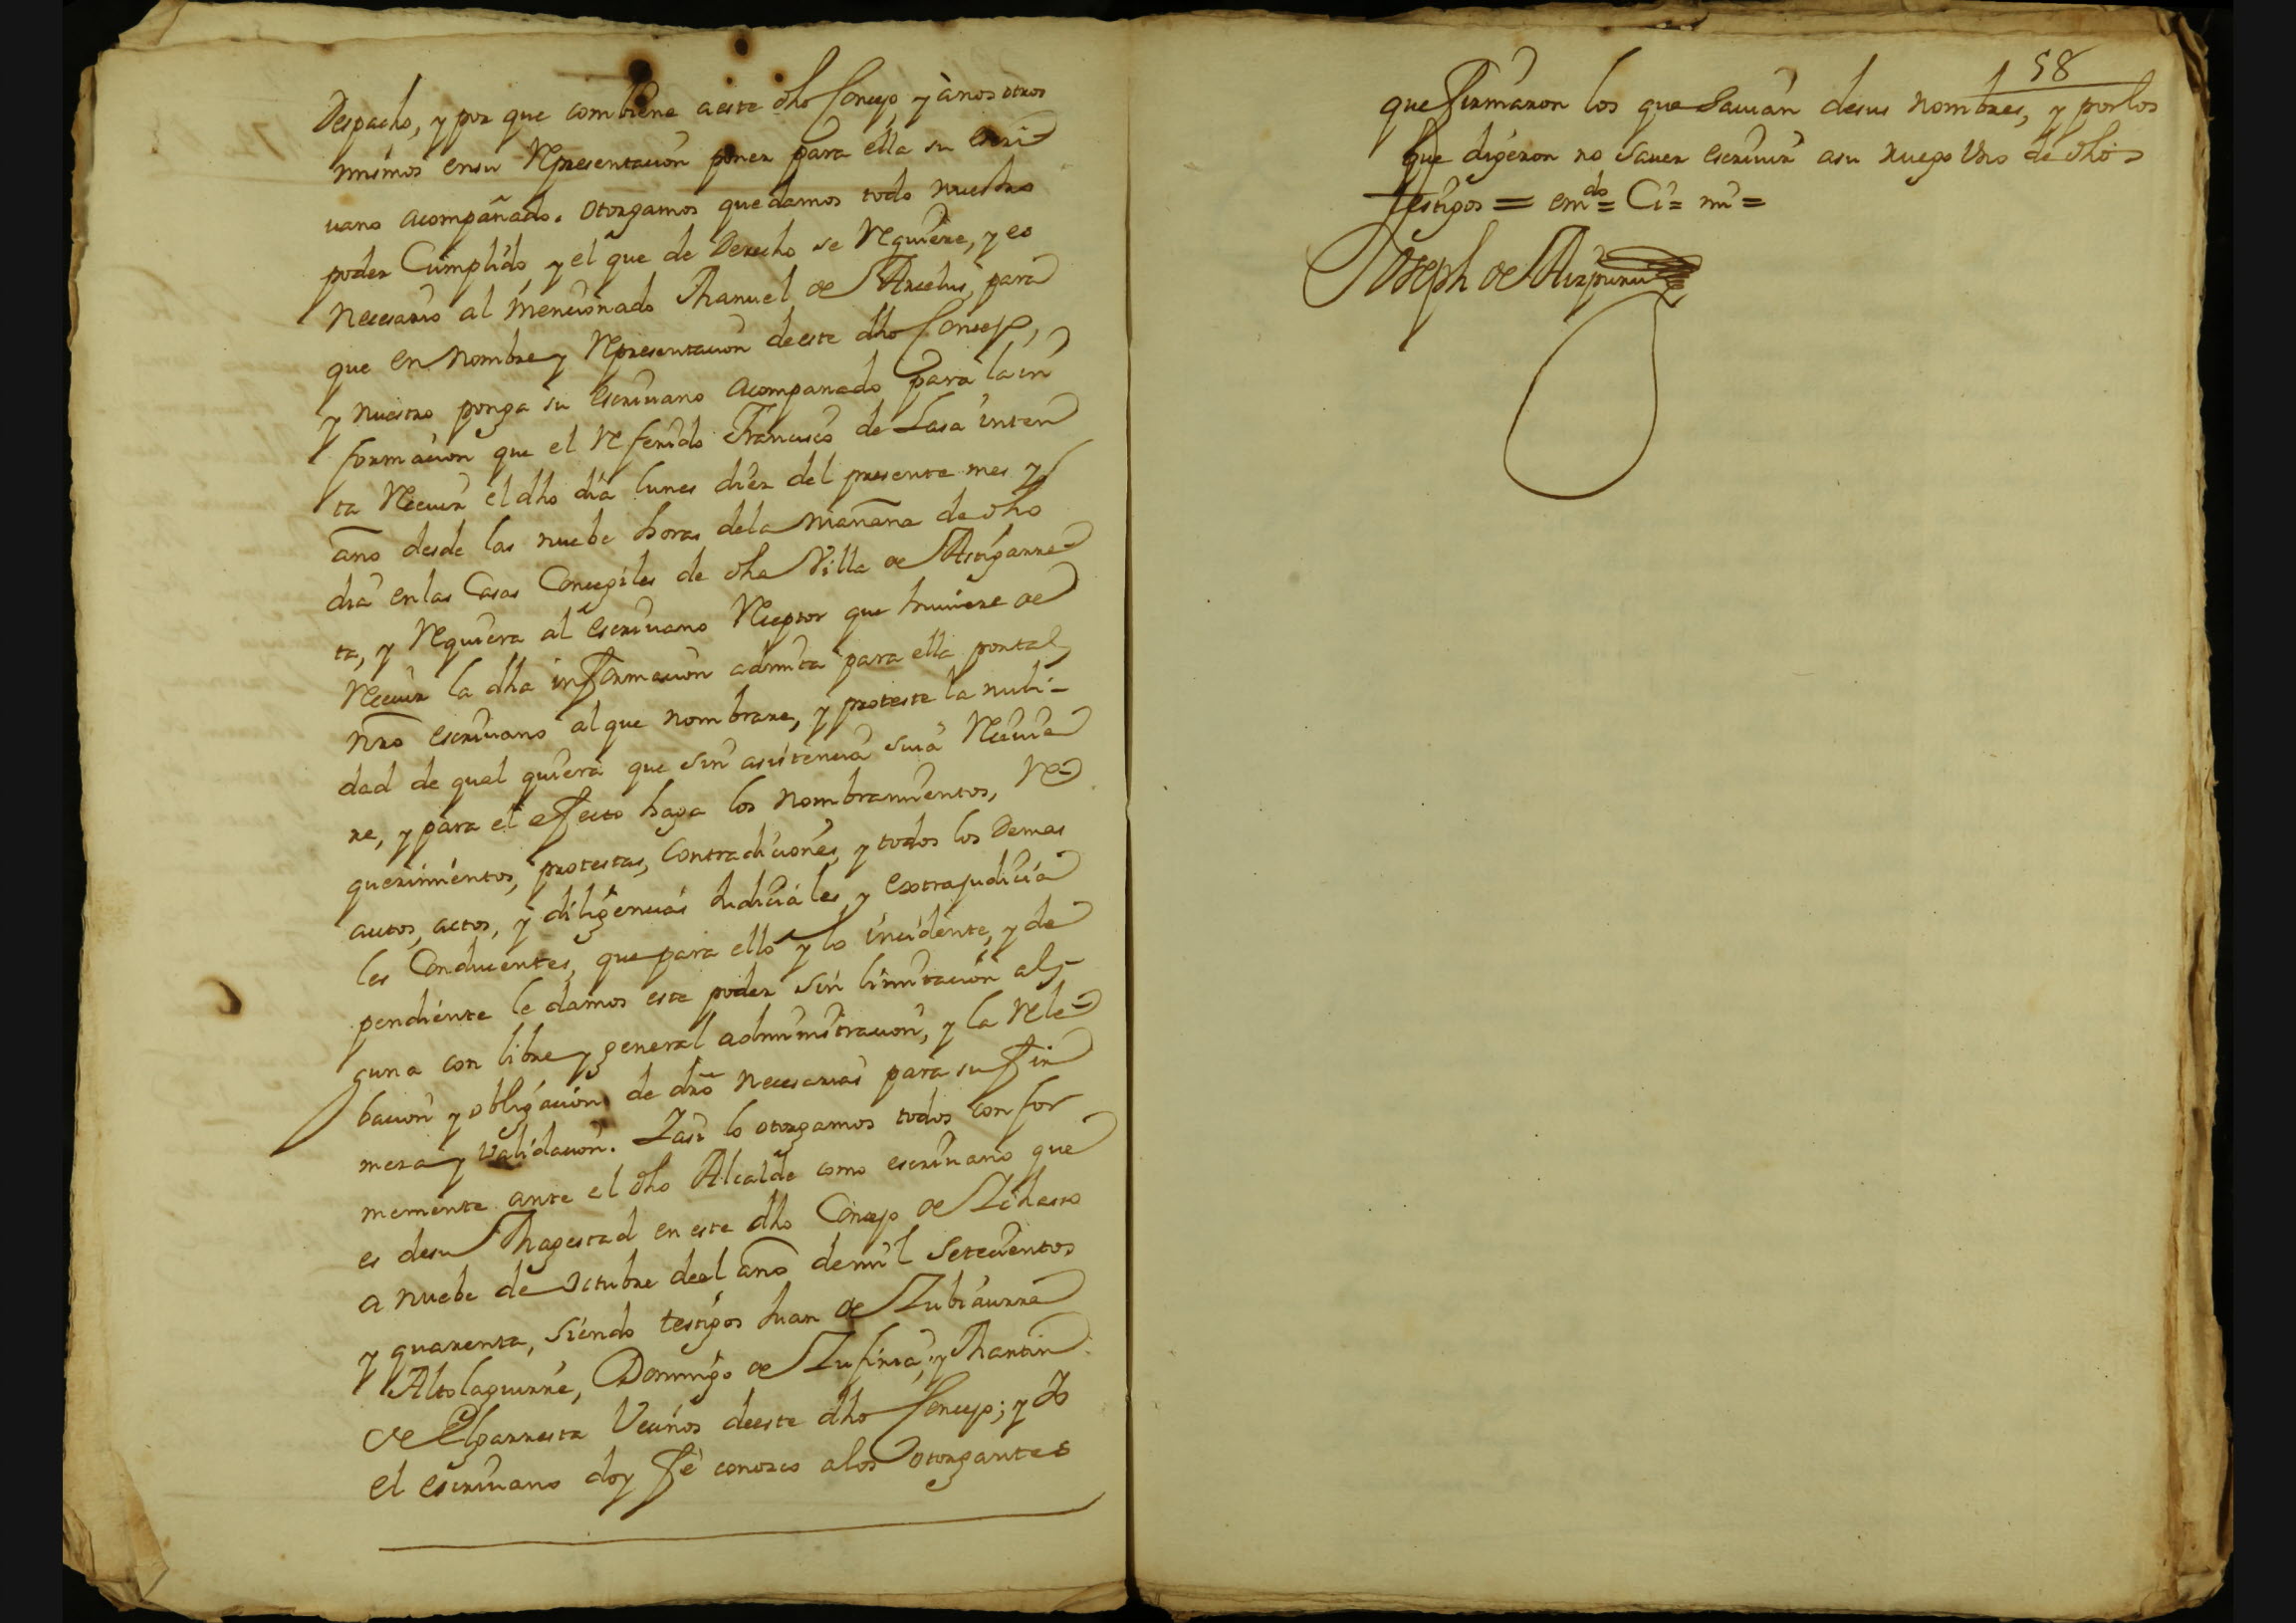 Despacho, y por que combiene a este dho Concejo, y ànosotros
mismos en su Representacion poner para ella su escri
uano acompañado. otorgamos que damos todo nuestro
poder Cumplido, y el que de Derecho se Requiere, y es
Necesario al mencionado Manuel de Arcelus, para
que en Nombre y Representacion de este dho Concejo,
y nuestro ponga su escriuano acompanado para la in
formacion que el Referido Francisco de Lasa inten
ta Reciuir el dho dia lunes diez del presente mes y
año desde las nuebe horas dela mañana de dho
dia en las Casas Concegiles de dha Villa de Astigarre
ta, y Requiera al escriuano Receptor que huuiere de
Reciuir la dha informacion admita para ella por tal
nro escriuano al que nombrare, y proteste la nuli-
dad de qual quiera que sin asistencia suia Reciuie
re, y para el efecto haga los nombramientos, Re-
querimientos, protestas, Contradiciones, y todos los Demas
autos, actos, y diligencias Judiciales, y extrajudicia
les Conducentes, que para ello y lo incidente, y de
pendiente le damos este poder sin limitacion al-
guna con libre y general administracion, y la Rele-
bacion y obligacion de dro necesarias para su fir
meza y validacion. Y asi lo otorgamos todos confor
memente ante el dho Alcalde como escriuano que
es de su Magestad en este dho Concejo de
a nuebe de octubre de el año de mil Setecientos
y quarenta, siendo testigos Juan de Zubiaurre
Altolaguirre, Domingo de Zufiria, y Martin
de Elgarresta Vecinos de este dho Concejo; y Yo
el escriuano doy fè conozco alos otorgantes
58
que firmaron los que Sauian desus nombres, y por los
que digeron no sauer escriuir a su ruego Uno de dhos
testigos = emdo = Ci = mi =
Joseph de Aizpuru